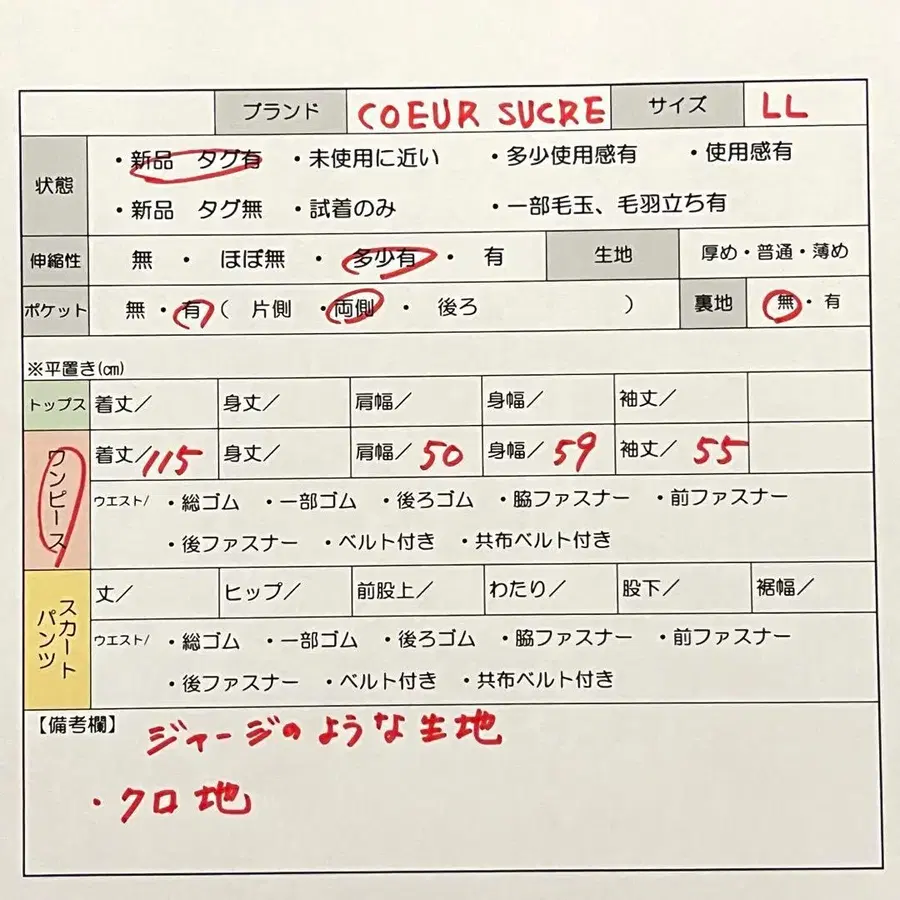 ブランド COEUR SUCRE サイズ LL
状態 ・新品 タグ有 ・未使用に近い ・多少使用感有 ・使用感有
・新品 タグ無 ・試着のみ ・一部毛玉、毛羽立ち有
伸縮性 無 ・ ほぼ無 ・ 多少有 ・ 有 生地 厚め・普通・薄め
ポケット 無・有( 片側 ・両側 ・ 後ろ ) 裏地 無・有
※平置き(cm)
トップス 着丈/ 身丈/ 肩幅/ 身幅/ 袖丈/
ワンピース 着丈/115 身丈/ 肩幅/ 50 身幅/ 59 袖丈/ 55
ウエスト/ ・総ゴム ・一部ゴム ・後ろゴム ・脇ファスナー ・前ファスナー
・後ファスナー ・ベルト付き ・共布ベルト付き
スカート パンツ 丈/ ヒップ/ 前股上/ わたり/ 股下/ 裾幅/
ウエスト/ ・総ゴム ・一部ゴム ・後ろゴム ・脇ファスナー ・前ファスナー
・後ファスナー ・ベルト付き ・共布ベルト付き
【備考欄】 ジャージのような生地
・クロ地